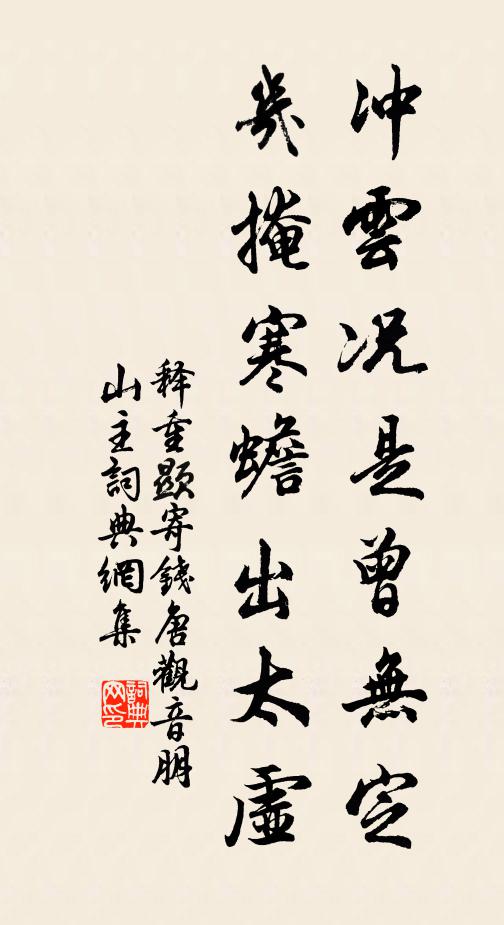 冲雲况是曾無定
幾掩寒蟾出太虛
释重顯寄錢唐觀音朋
山主詞典網集
詞典网印